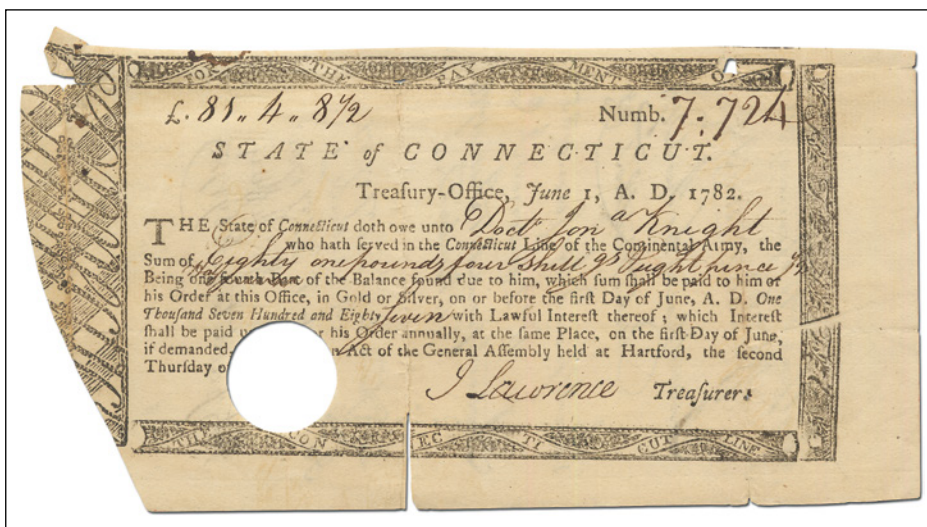 FOR THE PAYMENT O
£. 81 „ 4 „ 8 1/2 Numb. 7:724
STATE of CONNECTICUT.
Treaſury-Office, June 1, A. D. 1782.
THE State of Connecticut doth owe unto Doct Jona Knight
who hath ſerved in the Connecticut Line of the Continental Army, the
Sum of Eighty one pounds four Shillgs Eight pence 1/2
Being one fourth Part of the Balance found due to him, which ſum ſhall be paid to him or
his Order at this Office, in Gold or Silver, on or before the firſt Day of June, A. D. One
Thouſand Seven Hundred and Eighty ſeven with Lawful Intereſt thereof ; which Intereſt
ſhall be paid or his Order annually, at the ſame Place, on the firſt Day of June,
if demanded, Act of the General Aſſembly held at Hartford, the ſecond
Thurſday o
J Lawrence Treaſurer.
THE CONNECTICUT LINE